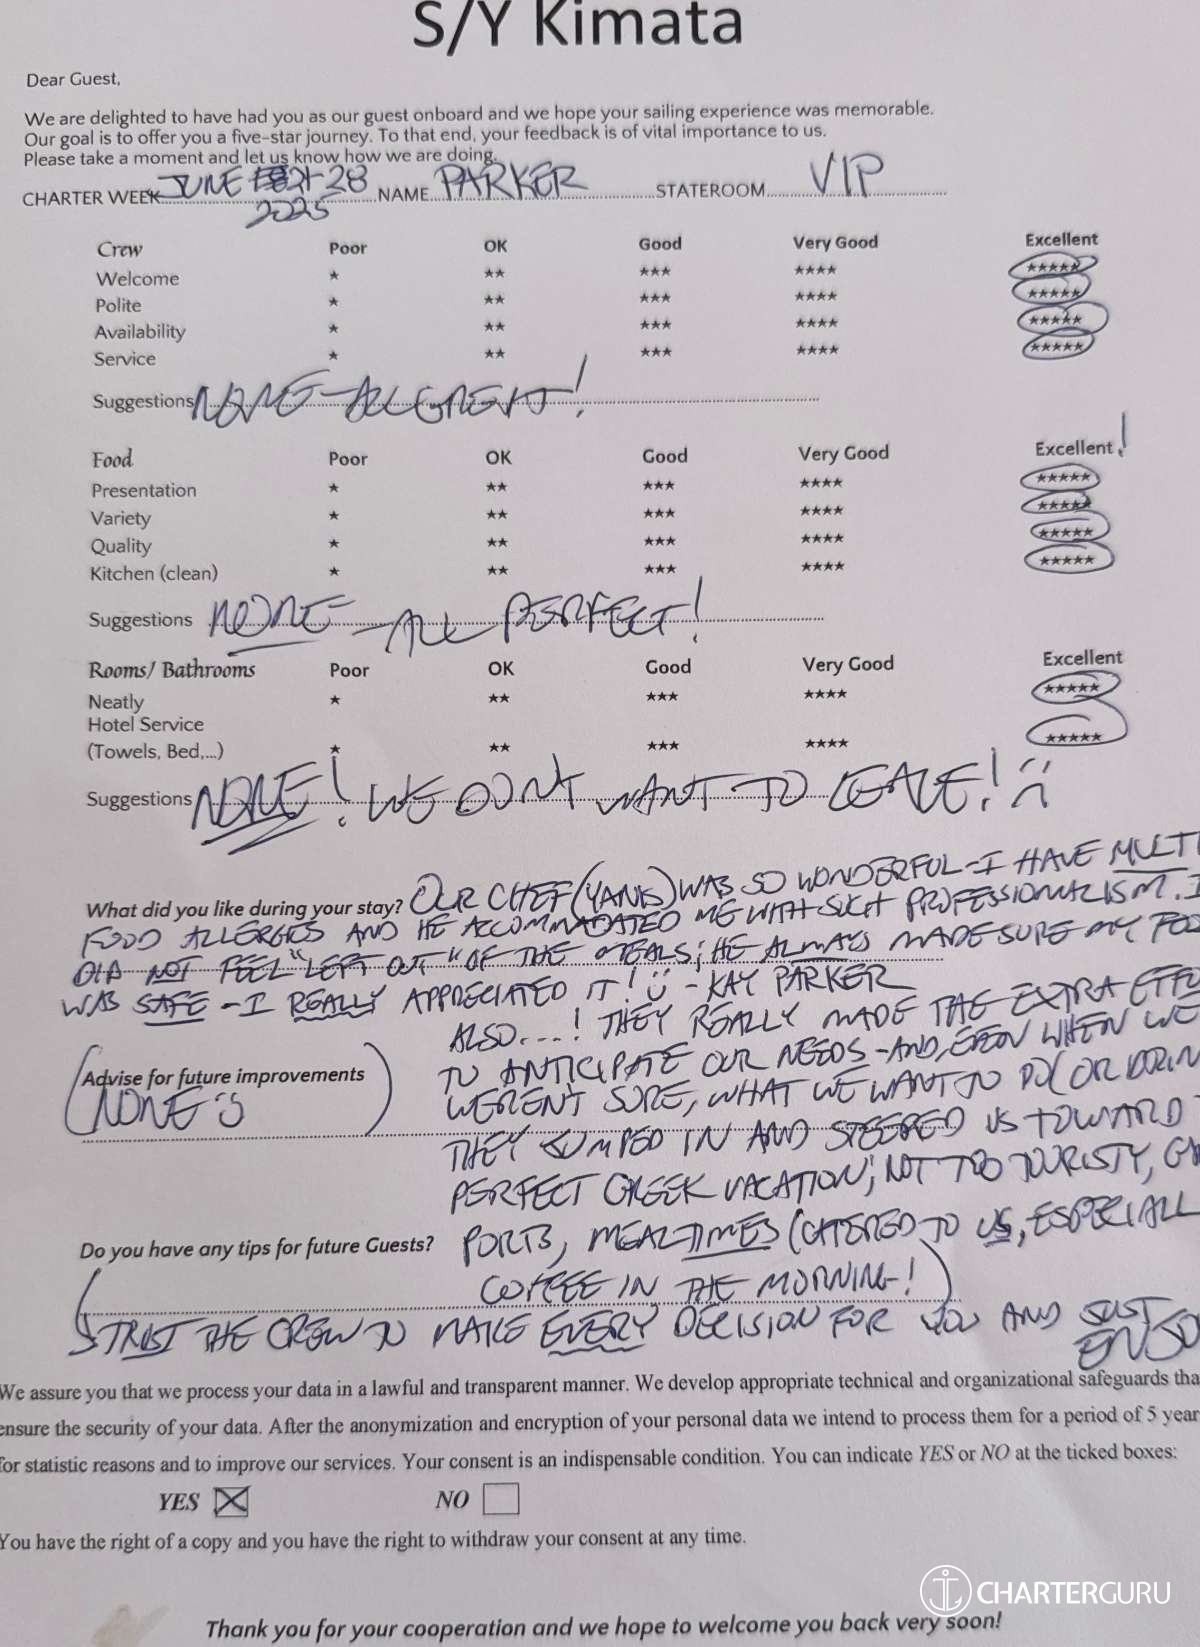 S/Y Kimata
Dear Guest,
We are delighted to have had you as our guest onboard and we hope your sailing experience was memorable.
Our goal is to offer you a five-star journey. To that end, your feedback is of vital importance to us.
Please take a moment and let us know how we are doing.
CHARTER WEEK JUNE 21-28 NAME PARKER STATEROOM VIP
2025
Crew Poor OK Good Very Good Excellent
Welcome ★ ★★ ★★★ ★★★★ ★★★★★
Polite ★ ★★ ★★★ ★★★★ ★★★★★
Availability ★ ★★ ★★★ ★★★★ ★★★★★
Service ★ ★★ ★★★ ★★★★ ★★★★★
Suggestions NONE - ALL GREAT!
Food Poor OK Good Very Good Excellent!
Presentation ★ ★★ ★★★ ★★★★ ★★★★★
Variety ★ ★★ ★★★ ★★★★ ★★★★★
Quality ★ ★★ ★★★ ★★★★ ★★★★★
Kitchen (clean) ★ ★★ ★★★ ★★★★ ★★★★★
Suggestions NONE - ALL PERFECT!
Rooms/ Bathrooms Poor OK Good Very Good Excellent
Neatly ★ ★★ ★★★ ★★★★ ★★★★★
Hotel Service
(Towels, Bed,...) ★ ★★ ★★★ ★★★★ ★★★★★
Suggestions NONE! WE DON'T WANT TO LEAVE! :(
What did you like during your stay? OUR CHEF (YANIS) WAS SO WONDERFUL - I HAVE MULTI
FOOD ALLERGIES AND HE ACCOMMADATED ME WITH SUCH PROFESSIONALISM. I
DID NOT FEEL "LEFT OUT" OF THE MEALS; HE ALWAYS MADE SURE MY FOO
WAS SAFE - I REALLY APPRECIATED IT! :) - KAY PARKER
ALSO....! THEY REALLY MADE THE EXTRA EFFO
TO ANTICIPATE OUR NEEDS - AND, EVEN WHEN WE
Advise for future improvements
NONE :)
WEREN'T SURE, WHAT WE WANT TO DO (OR DRIN
THEY JUMPED IN AND STEERED US TOWARD
PERFECT GREEK VACATION; NOT TOO TOURISTY,
Do you have any tips for future Guests?
PORTS, MEAL-TIMES (CATERED TO US, ESPECIALL
COFFEE IN THE MORNING!)
TRUST THE CREW TO MAKE EVERY DECISION FOR YOU AND JUST
ENJO
We assure you that we process your data in a lawful and transparent manner. We develop appropriate technical and organizational safeguards tha
ensure the security of your data. After the anonymization and encryption of your personal data we intend to process them for a period of 5 year
for statistic reasons and to improve our services. Your consent is an indispensable condition. You can indicate YES or NO at the ticked boxes:
YES ☒ NO ☐
You have the right of a copy and you have the right to withdraw your consent at any time.
CHARTERGURU
Thank you for your cooperation and we hope to welcome you back very soon!